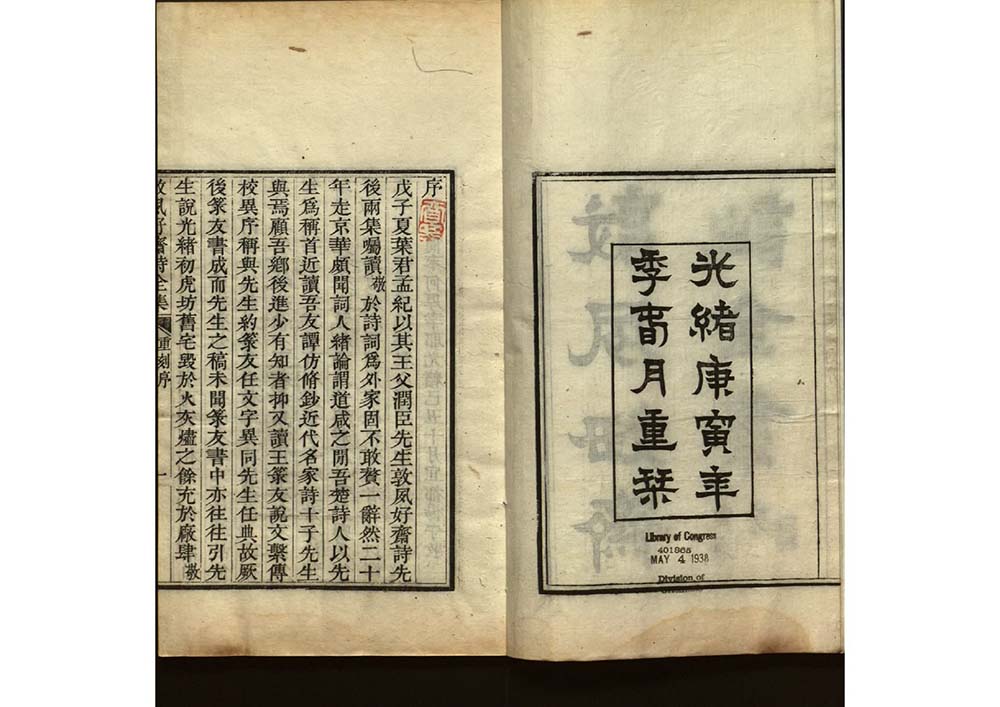 光緒庚寅年
季春月重栞
Library of Congress
401965
MAY 4 1938
Division of
序
戊子夏葉君孟紀以其王父潤臣先生敦夙好齋詩先
後兩集囑讀敬於詩詞爲外家固不敢贅一辭然二十
年走京華頗聞詞人緒論謂道咸之閒吾楚詩人以先
生爲稱首近讀吾友譚仿脩鈔近代名家詩十子先生
與焉顧吾鄉後進少有知者抑又讀王箓友說文繫傳
校異序稱與先生約箓友任文字異同先生任典故厥
後箓友書成而先生之稿未聞箓友書中亦往往引先
生說光緒初虎坊舊宅毀於火灰燼之餘充於廠肆敬
敦夙好齋詩全集 重刻序 一